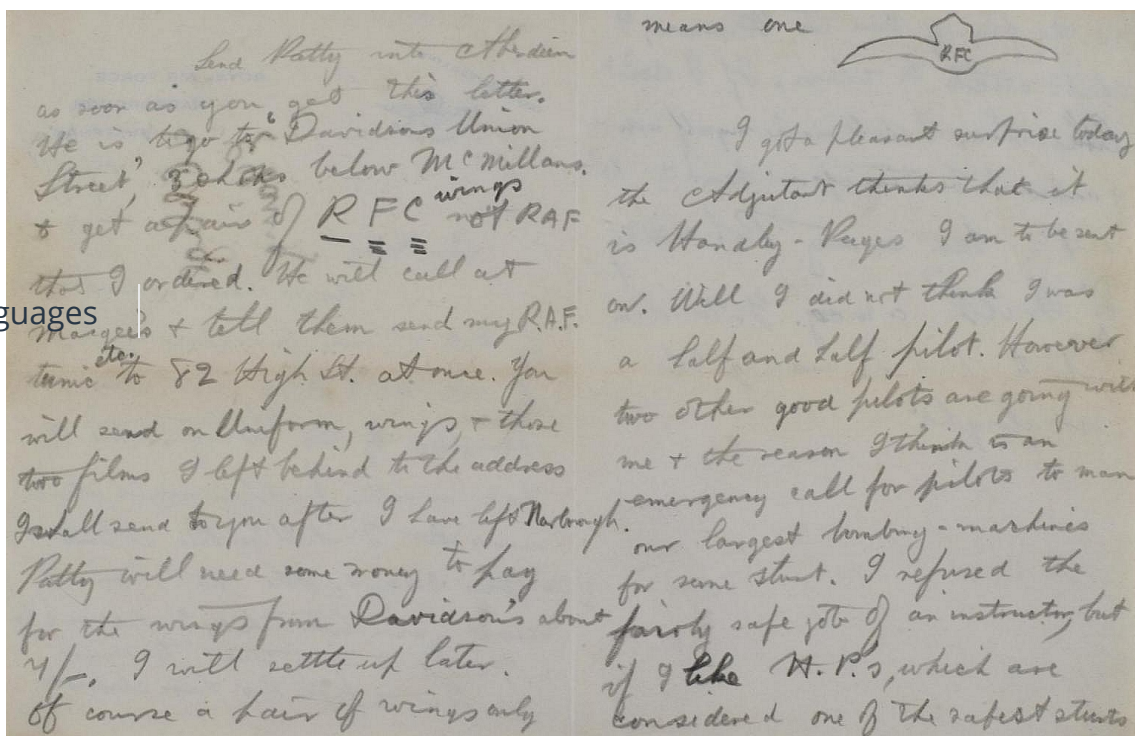 Send Patty into Aberdeen
as soon as you get this letter.
He is to go to "Davidsons Union
Street', 3 below McMillans.
& get a pair of R F C wings not RAF
that I ordered. He will call at
guages
& tell them send my R.A.F.
tunic etc. to 82 High St. at once. You
will send on Uniform, wings, & those
two films I left behind to the address
I shall send to you after I have left Narborough.
Patty will need some money to pay
for the wings from Davidson's about
7/-. I will settle up later.
Of course a pair of wings only
means one
RFC
I got a pleasant surprise today
the Adjutant thinks that it
is Handley-Pages I am to be sent
on. Well I did not think I was
a half and half pilot. However
two other good pilots are going with
me & the reason I think is an
emergency call for pilots to man
our largest bombing-machines
for some stunt. I refused the
fairly safe job of an instructor, but
if I like H.P.s, which are
considered one of the safest stunts